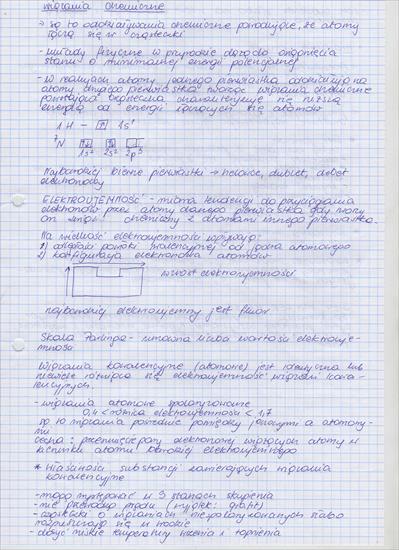 Wiązania chemiczne
- są to oddziaływania chemiczne powodujące, że atomy
łączą się w cząsteczki
- układy fizyczne w przyrodzie dążą do osiągnięcia
stanu o minimalnej energii potencjalnej
- w reakcjach atomy jednego pierwiastka oddziałują na
atomy drugiego pierwiastka tworząc wiązania chemiczne
powstająca cząsteczka charakteryzuje się niższą
energią od energii łączących się atomów
1H - ↑ 1s¹
7N ↑↓ ↑↓
1s² 2s² 2p³
Najbardziej bierne pierwiastki → helowce, dublet, oktet
elektronowy
ELEKTROUJEMNOŚĆ - miara tendencji do przyciągania
elektronów przez atomy danego pierwiastka gdy tworzy
on wiąz. chemiczny z atomami innego pierwiastka.
Na wielkość elektroujemności wpływają:
1) odległość powłoki walencyjnej od jądra atomowego
2) konfiguracja elektronowa atomów
wzrost elektroujemności
najbardziej elektroujemny jest fluor
Skala Paulinga - umowna liczba wartości elektrouje-
mności
Wiązania kowalencyjne (atomowe) jest identyczna lub
niewiele różniąca się elektroujemność wiązań kowa-
lencyjnych.
- wiązania atomowe spolaryzowane
0,4 < różnica elektroujemności < 1,7
są to wiązania pośrednie pomiędzy jonowymi a atomowy-
mi
cecha: przesunięcie pary elektronowej wiążących atomy w
kierunku atomu bardziej elektroujemnego
* Właściwości substancji zawierających wiązania
kowalencyjne
- mogą występować w 3 stanach skupienia
- nie przewodzą prądu (wyjątek: grafit)
- cząsteczki o wiązaniach niespolaryzowanych słabo
rozpuszczają się w wodzie
- dosyć niskie temperatury wrzenia i topnienia